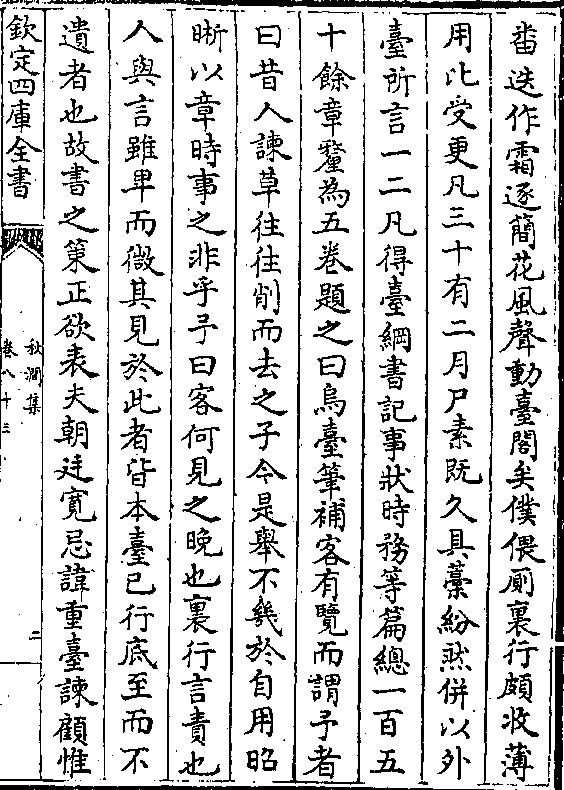 畨迭作霜逐簡花風聲動臺閣矣僕偎厠裏行頗收薄
用比受更凡三十有二月尸素既久具藁紛然併以外
臺所言一二凡得臺綱書記事狀時務等篇總一百五
十餘章釐為五卷題之曰烏臺筆補客有覽而謂予者
曰昔人諫草往往削而去之子今是舉不幾於自用昭
晣以章時事之非乎予曰客何見之晚也裏行言責也
人與言雖卑而微其見於此者皆本臺已行底至而不
遺者也故書之策正欲表夫朝廷寛忌諱重臺諫顧惟
欽定四庫全書
秋澗集
卷八十三
二